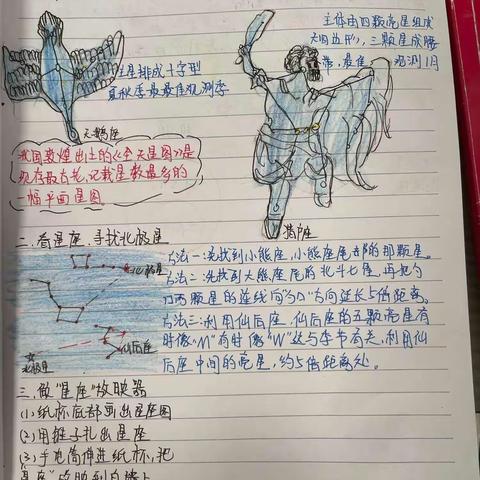 主体由四颗亮星组成
大四边形，三颗星成腰
带，最佳观测1月
主星排成十字型
夏秋季最最佳观测季
天鹅座
我国敦煌出土的《全天星图》是
现存最古老，记载星数最多的
一幅平面星图
猎户座
二、看星座，寻找北极星
北极星
仙后座
北极星
方法一：先找到小熊座，小熊座尾部的那颗星。
方法二：先找到大熊座尾的北斗七星，再把勺
口两颗星的连线向"勺口"方向延长5倍距离。
方法三：利用仙后座，仙后座的五颗亮星有
时像"M"有时像"W"这与季节有关，利用仙
后座中间的亮星，约5倍距离处。
三、做"星座"放映器
(1)纸杯底部画出星座图
(2)用锥子扎出星座
(3)手电筒伸进纸杯，把
星座"放映到白墙上